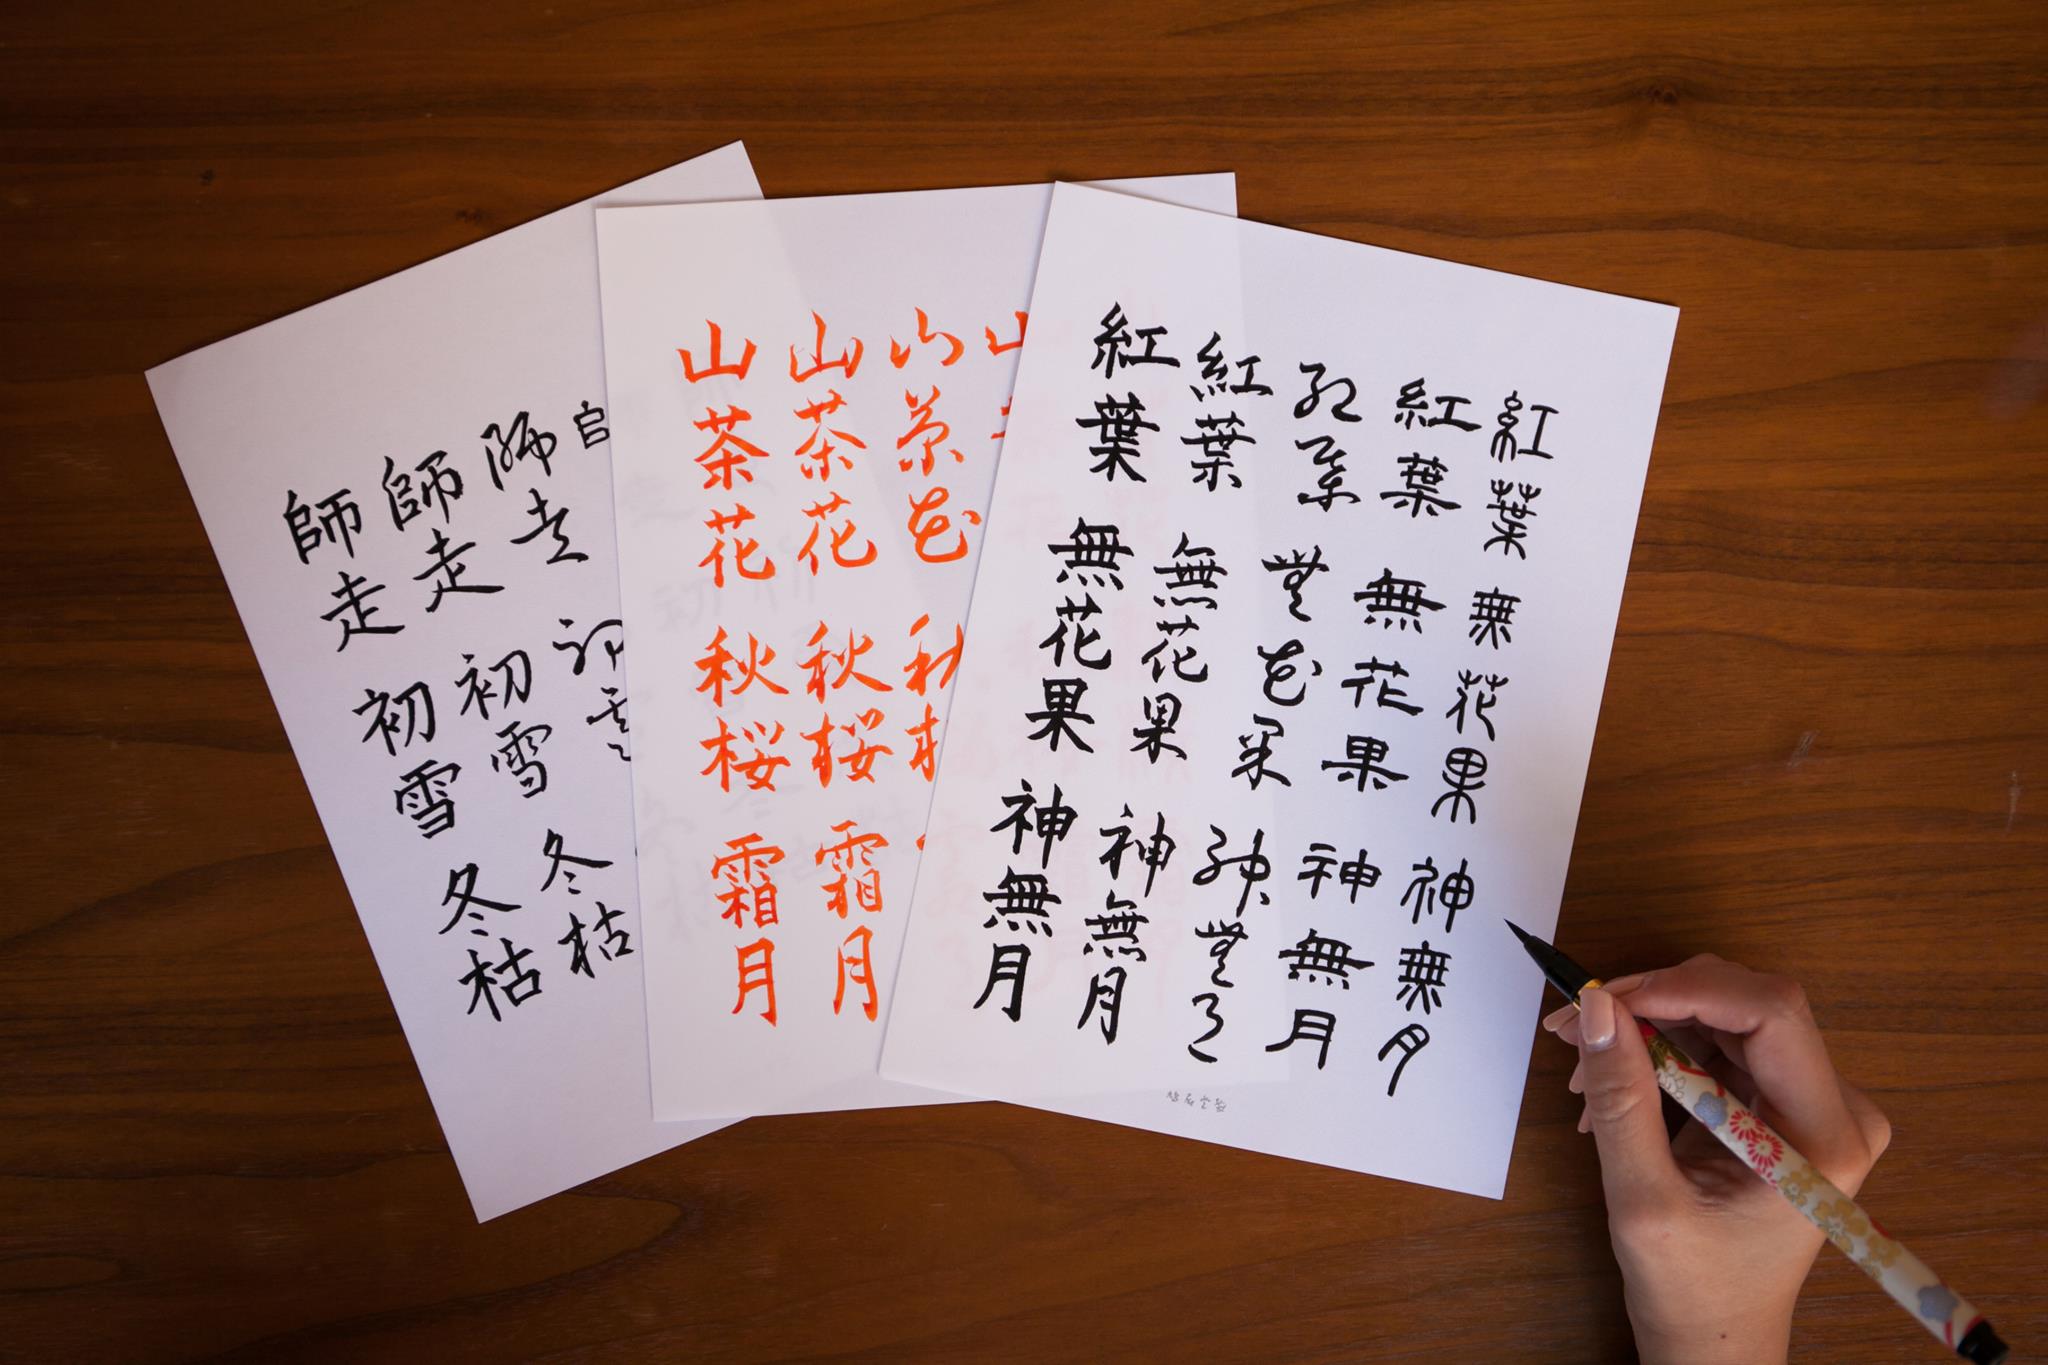 師走 初雪 冬枯
師走 初雪 冬枯
師走 初雪
山茶花 秋桜 霜月
山茶花 秋桜 霜月
山茶花 秋桜
山
紅葉 無花果 神無月
紅葉 無花果 神無月
紅葉 無花果 神無月
紅葉 無花果 神無月
紅葉 無花果 神無月